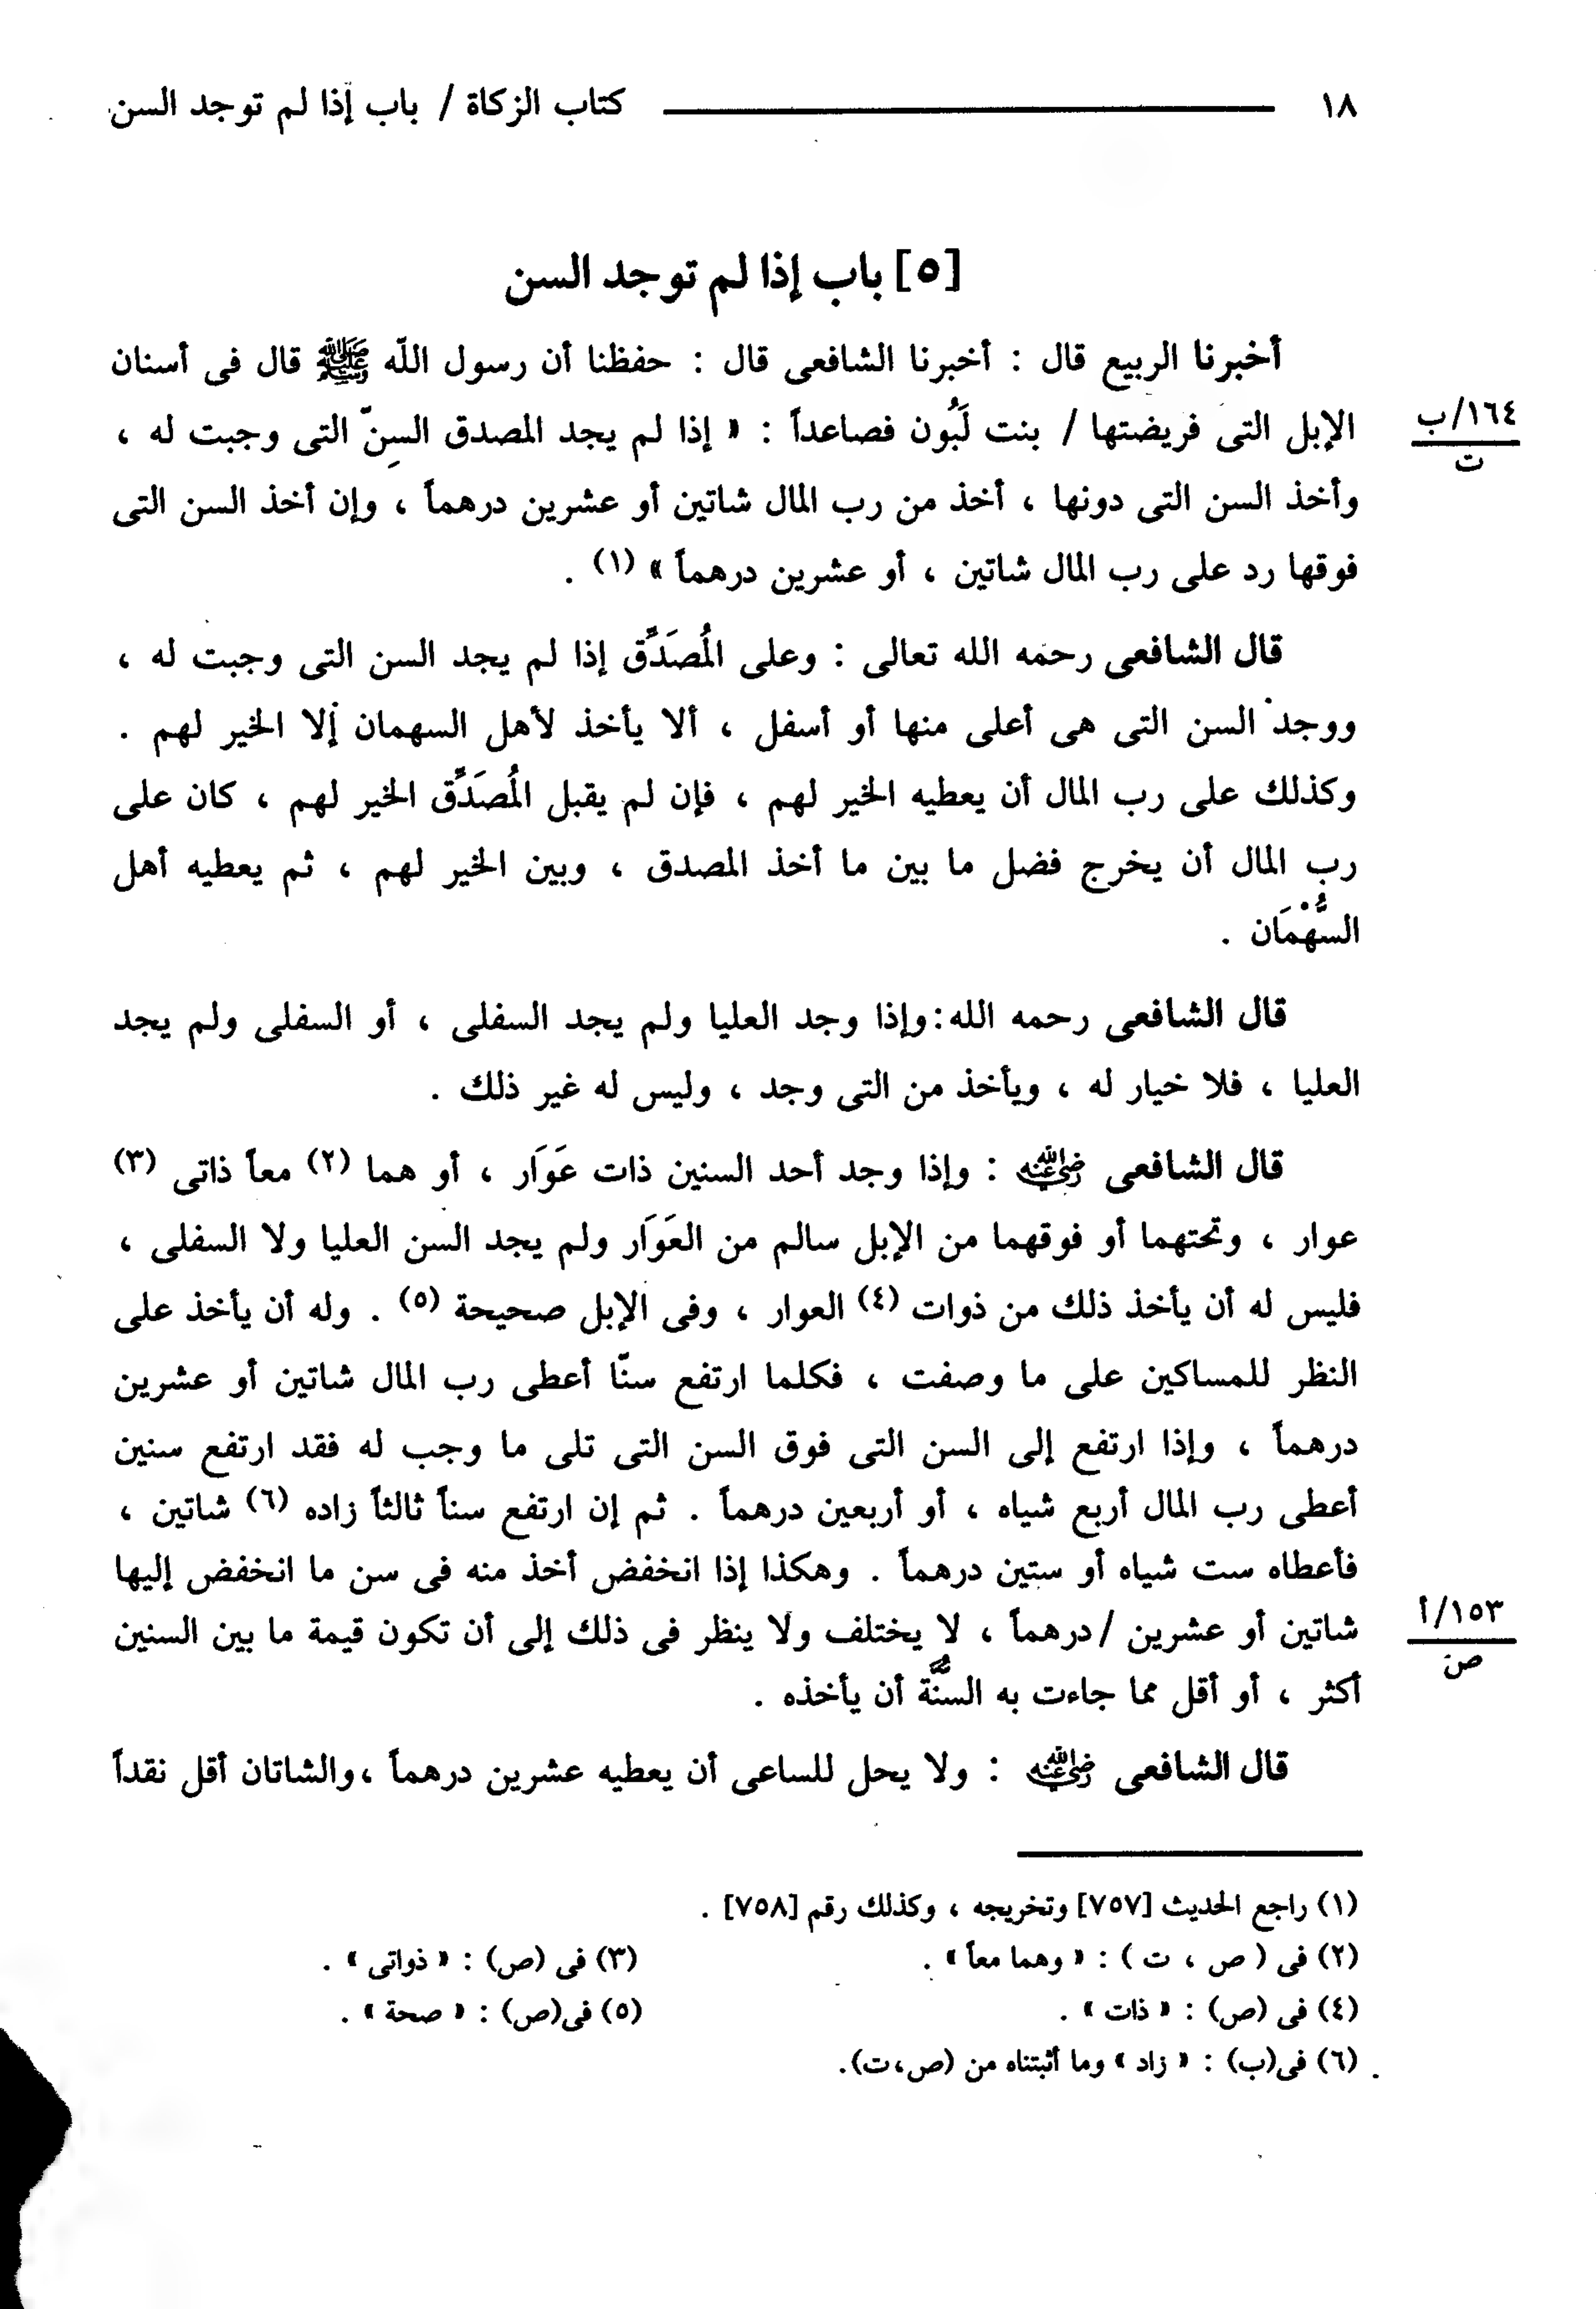 ١٨ كتاب الزكاة / باب إذا لم توجد السن
[٥] باب إذا لم توجد السن
أخبرنا الربيع قال : أخبرنا الشافعى قال : حفظنا أن رسول اللّه ﷺ قال فى أسنان
١٦٤/ب
ت
الإبل التى فريضتها / بنت لَبُون فصاعداً : « إذا لم يجد المصدق السِنّ التى وجبت له ،
وأخذ السن التى دونها ، أخذ من رب المال شاتين أو عشرين درهماً ، وإن أخذ السن التى
فوقها رد على رب المال شاتين ، أو عشرين درهماً » (١) .
قال الشافعى رحمه الله تعالى : وعلى المُصَدِّق إذا لم يجد السن التى وجبت له ،
ووجد السن التى هى أعلى منها أو أسفل ، ألا يأخذ لأهل السهمان إلا الخير لهم .
وكذلك على رب المال أن يعطيه الخير لهم ، فإن لم يقبل المُصَدِّق الخير لهم ، كان على
رب المال أن يخرج فضل ما بين ما أخذ المصدق ، وبين الخير لهم ، ثم يعطيه أهل
السُّهْمَان .
قال الشافعى رحمه الله:وإذا وجد العليا ولم يجد السفلى ، أو السفلى ولم يجد
العليا ، فلا خيار له ، ويأخذ من التى وجد ، وليس له غير ذلك .
قال الشافعى رضي الله عنه : وإذا وجد أحد السنين ذات عَوَار ، أو هما (٢) معاً ذاتى (٣)
عوار ، وتحتهما أو فوقهما من الإبل سالم من العَوَار ولم يجد السن العليا ولا السفلى ،
فليس له أن يأخذ ذلك من ذوات (٤) العوار ، وفى الإبل صحيحة (٥) . وله أن يأخذ على
النظر للمساكين على ما وصفت ، فكلما ارتفع سنّا أعطى رب المال شاتين أو عشرين
درهماً ، وإذا ارتفع إلى السن التى فوق السن التى تلى ما وجب له فقد ارتفع سنين
أعطى رب المال أربع شياه ، أو أربعين درهماً . ثم إن ارتفع سناً ثالثاً زاده (٦) شاتين ،
فأعطاه ست شياه أو ستين درهماً . وهكذا إذا انخفض أخذ منه فى سن ما انخفض إليها
١٥٣/أ
ص
شاتين أو عشرين /درهماً ، لا يختلف ولا ينظر فى ذلك إلى أن تكون قيمة ما بين السنين
أكثر ، أو أقل مما جاءت به السُّنَّة أن يأخذه .
قال الشافعى رضي الله عنه : ولا يحل للساعى أن يعطيه عشرين درهماً ،والشاتان أقل نقداً
(١) راجع الحديث [٧٥٧] وتخريجه ، وكذلك رقم [٧٥٨] .
(٢) فى ( ص ، ت ) : « وهما معاً » . (٣) فى (ص) : « ذواتى » .
(٤) فى (ص) : « ذات » . (٥) فى(ص) : « صحة » .
(٦) فى(ب) : « زاد » وما أثبتناه من (ص،ت).